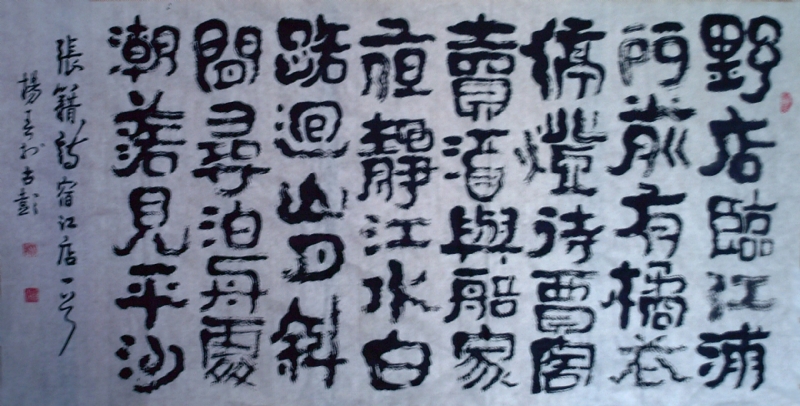 野店臨江浦
門前有橘花
停燈待賈客
賣酒與船家
夜靜江水白
路迴山月斜
間尋泊舟處
潮落見平沙
張籍詩宿江店一首
楊 於古彭